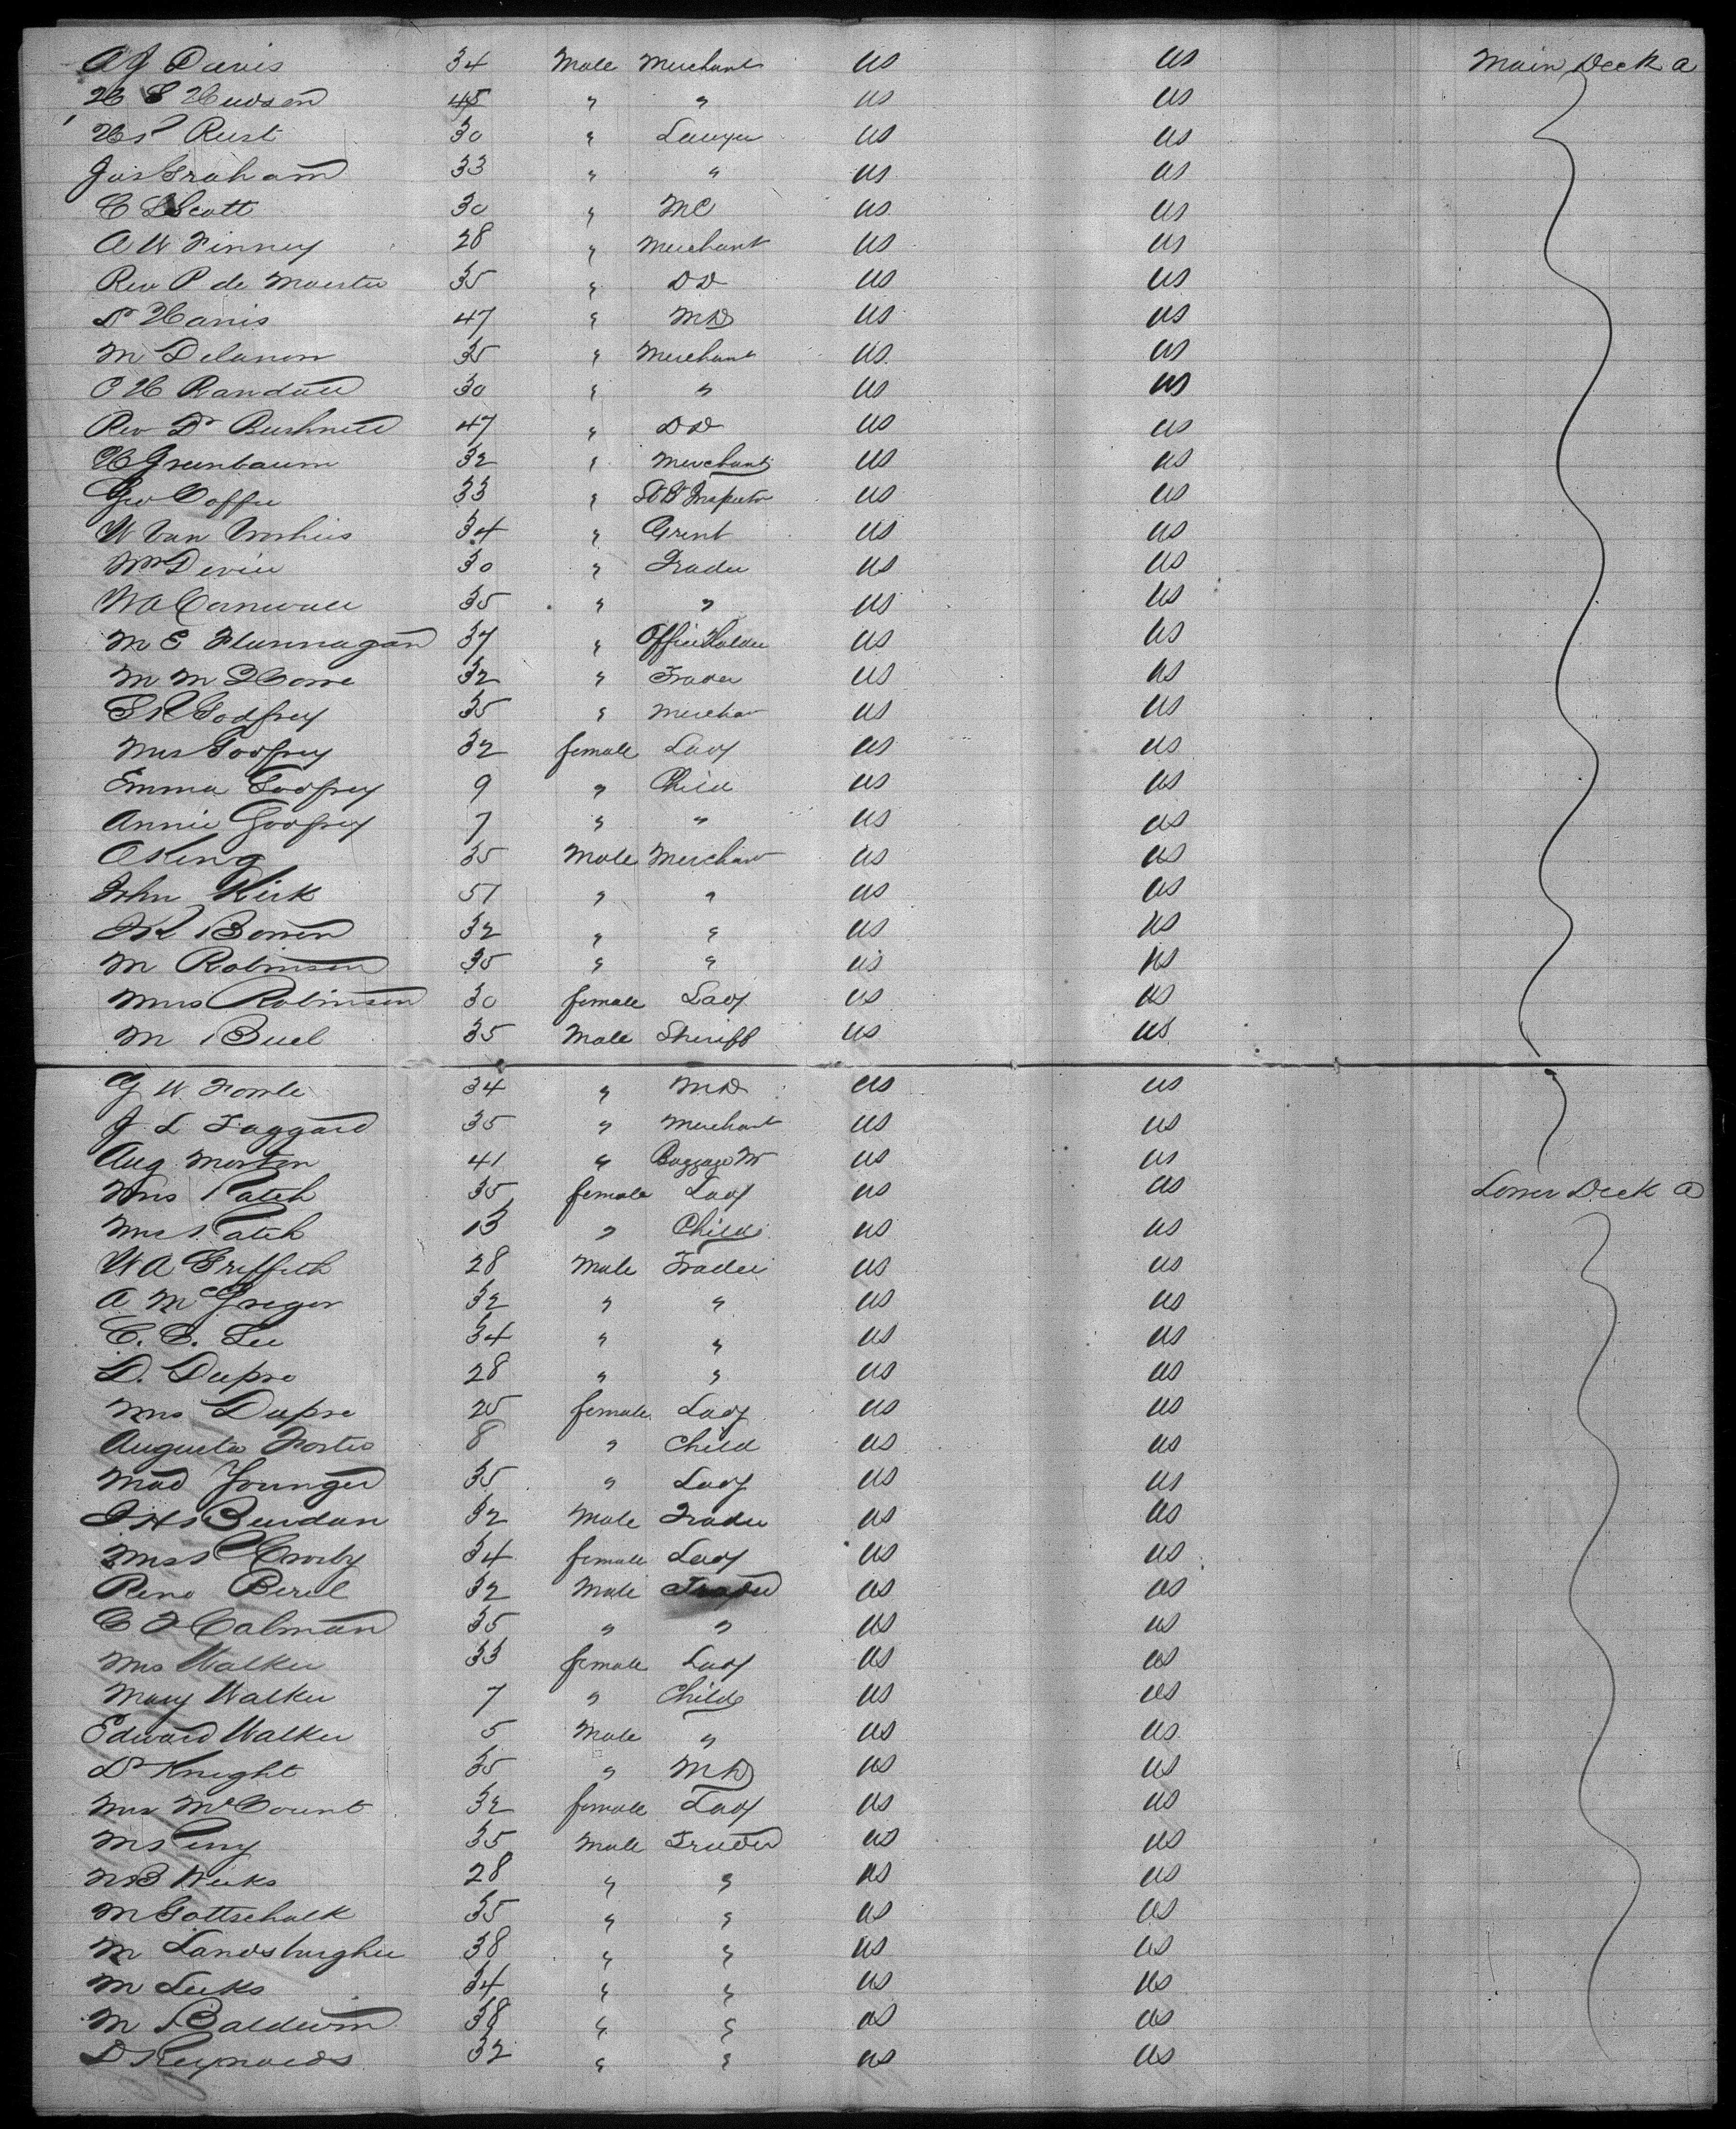 A J Davis 34 Male Merchant US US Main Deck a
H S Hudson 45 " " US US
Rust 30 " Lawyer US US
Jas Graham 33 " " US US
C L Scott 30 " MC US US
A W Finney 28 " Merchant US US
Rev P de 35 " DD US US
Dr Harris 47 " MD US US
M Delanon 35 " Merchant US US
C H Randall 30 " " US US
Rev Dr Bushnell 47 " DD US US
H Greenbaum 32 " Merchant US US
Geo Coffee 33 " St Bt Inspector US US
W Van Vorhies 34 " US US
Wm Devine 30 " Trader US US
W A Cornwall 35 " " US US
M E Flannagan 37 " Office Holder US US
M M Howe 32 " Trader US US
Godfrey 35 " Merchan US US
Mrs Godfrey 32 female Lady US US
Emma Godfrey 9 " Child US US
Annie Godfrey 7 " " US US
A King 35 Male Merchan US US
John Kirk 51 " " US US
Bowen 32 " " US US
M Robinson 35 " " US US
Mrs Robinson 30 female Lady US US
M Buel 35 Male Sheriff US US
G W Fowle 34 " MD US US
J L Taggard 35 " Merchant US US
Aug Morton 41 " Baggage Mr US US
Mrs Patch 35 female Lady US US Lower Deck a
Patch 13 " Child US US
W A Griffith 28 Male Trader US US
A McGregor 32 " " US US
C. C. Lee 34 " " US US
D. Dupre 28 " " US US
Mrs Dupre 25 female Lady US US
Augusta Foster 8 " Child US US
Mad Younger 35 " Lady US US
Beudan 32 Male Trader US US
Crosby 34 female Lady US US
Reno 32 Male Trader US US
C F Calman 35 " " US US
Mrs Walker 33 female Lady US US
Mary Walker 7 " Child US US
Edward Walker 5 Male " US US
Dr Knight 35 " MD US US
Mrs McCount 32 female Lady US US
M Perry 35 Male Trader US US
Weeks 28 " " US US
M Gottschalk 35 " " US US
M Landsburgher 38 " " US US
M Leeks 34 " " US US
M Baldwin 38 " " US US
D Reynolds 32 " " US US